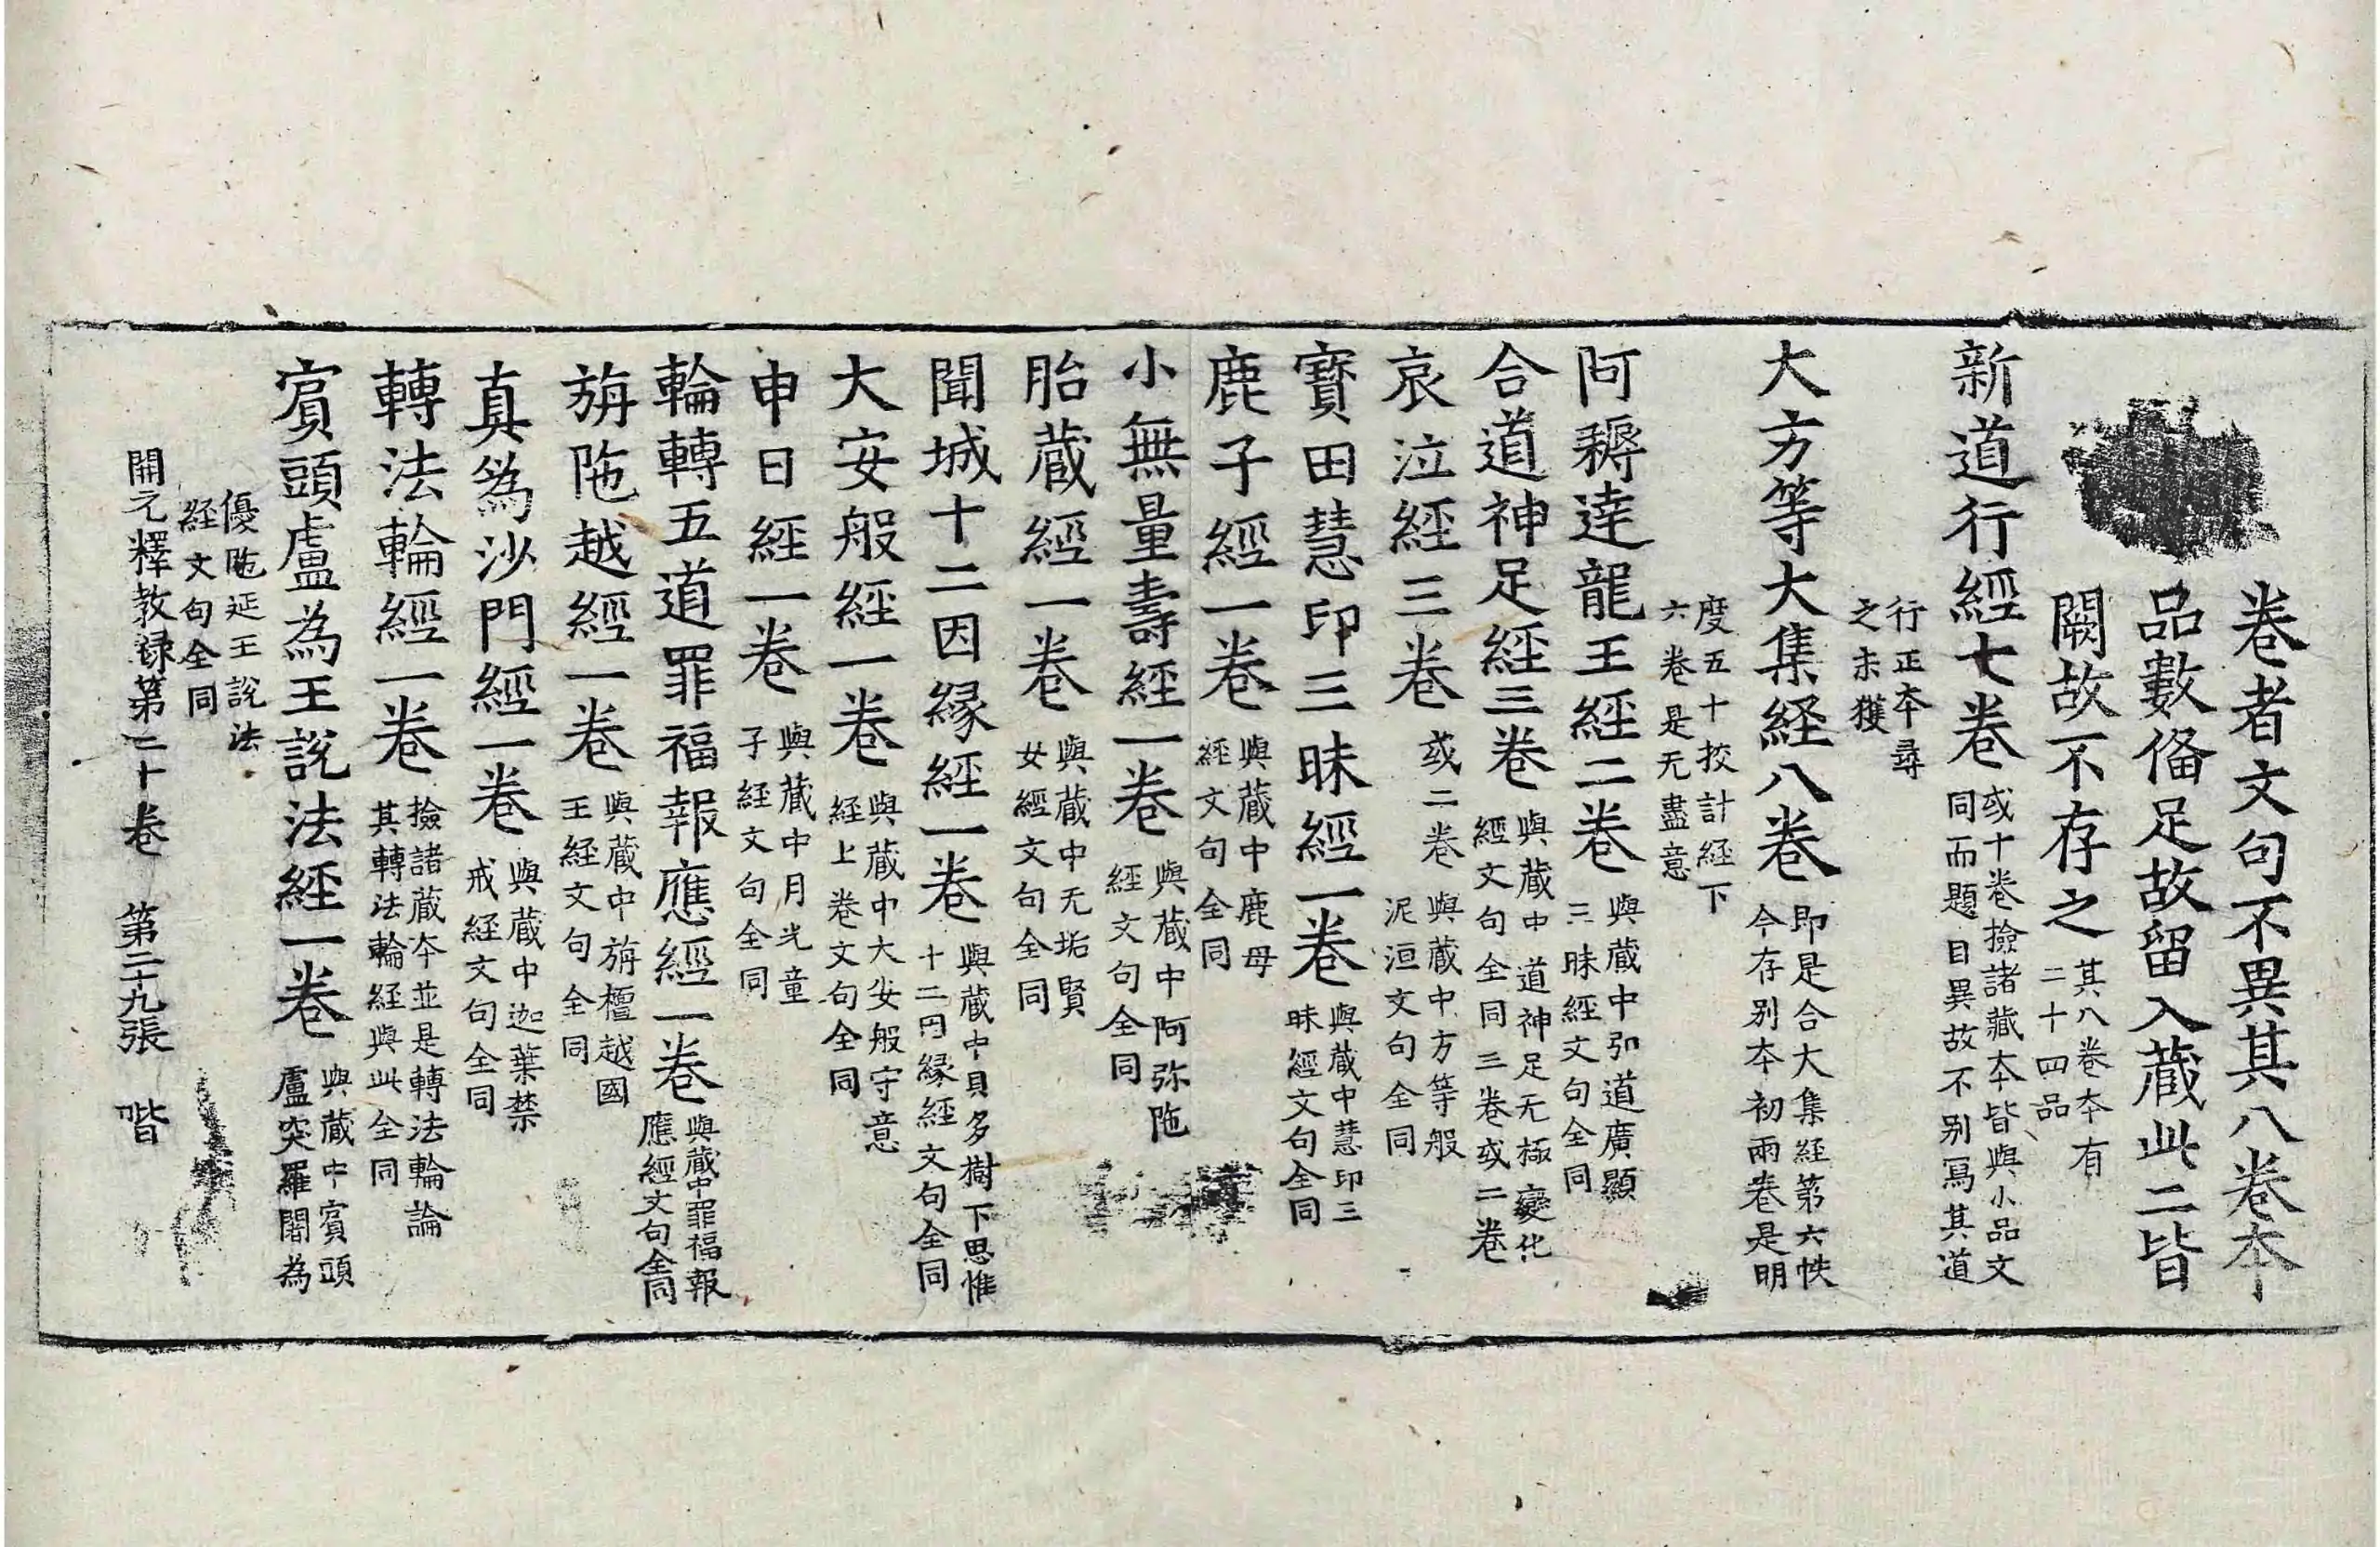 卷者文句不異其八卷本
品數俻足故留入蔵此二皆
闕故不存之
其八卷本有
二十四品
新道行經七卷
或十卷撿諸藏本皆與小品文
同而題目異故不別寫其道
行正本尋
之未獲
大方等大集経八卷
即是合大集経第六帙
今存別本初兩卷是明
度五十挍計経下
六卷是无盡意
阿耨達龍王經二卷
與蔵中弘道廣顯
三昧經文句全同
合道神足經三卷
與蔵中道神足无極變化
經文句全同三卷或二卷
哀泣經三卷
或二卷
與蔵中方等般
泥洹文句全同
寶田慧印三昧經一卷
與蔵中慧印三
昧經文句全同
鹿子經一卷
與蔵中鹿母
經文句全同
小無量壽經一卷
與蔵中阿弥陁
經文句全同
胎蔵經一卷
與蔵中无垢賢
女經文句全同
聞城十二因縁經一卷
與蔵中貝多樹下思惟
十二因縁經文句全同
大安般經一卷
與蔵中大安般守意
経上卷文句全同
申日經一卷
與蔵中月光童
子経文句全同
輪轉五道罪福報應經一卷
與蔵中罪福報
應經文句全同
旃陁越經一卷
與蔵中旃檀越國
王経文句全同
真為沙門經一卷
與蔵中迦葉禁
戒経文句全同
轉法輪經一卷
撿諸蔵本並是轉法輪論
其轉法輪経與此全同
賔頭盧為王說法經一卷
與蔵中賔頭
盧突羅闍為
優陁延王說法
経文句全同
開元釋教録第二十卷　第二十九張　喈